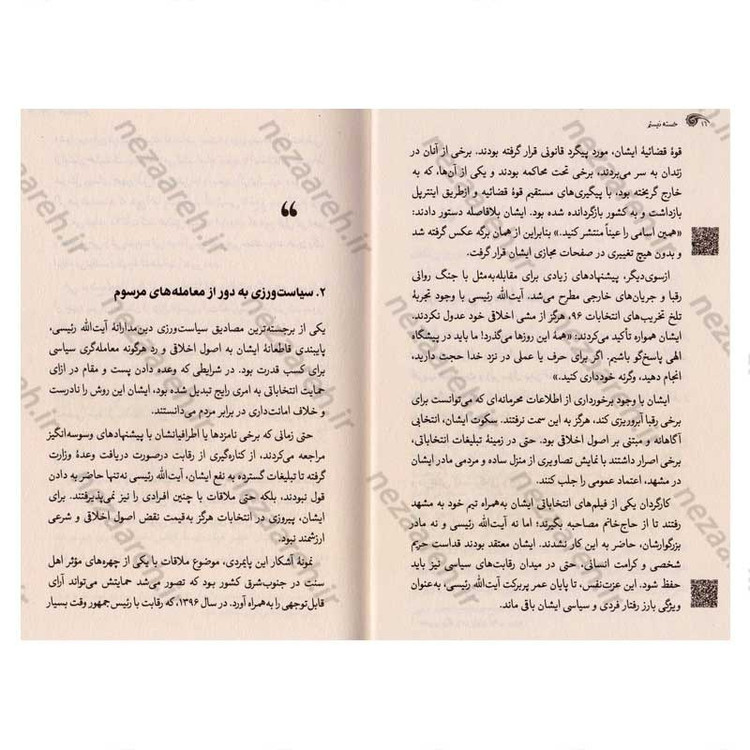 ۱۶ خسته نیستم
قوهٔ قضائیهٔ ایشان، مورد پیگرد قانونی قرار گرفته بودند. برخی از آنان در
زندان به سر می‌بردند، برخی تحت محاکمه بودند و یکی از آن‌ها، که به
خارج گریخته بود، با پیگیری‌های مستقیم قوهٔ قضائیه و ازطریق اینترپل
بازداشت و به کشور بازگردانده شده بود. ایشان بلافاصله دستور دادند:
«همین اسامی را عیناً منتشر کنید.» بنابراین از همان برگه عکس گرفته شد
و بدون هیچ تغییری در صفحات مجازی ایشان قرار گرفت.
ازسوی‌دیگر، پیشنهادهای زیادی برای مقابله‌به‌مثل با جنگ روانی
رقبا و جریان‌های خارجی مطرح می‌شد. آیت‌الله رئیسی با وجود تجربهٔ
تلخ تخریب‌های انتخابات ۹۶، هرگز از مشی اخلاقی خود عدول نکردند.
ایشان همواره تأکید می‌کردند: «همهٔ این روزها می‌گذرد! ما باید در پیشگاه
الهی پاسخ‌گو باشیم. اگر برای حرف یا عملی در نزد خدا حجت دارید،
انجام دهید، وگرنه خودداری کنید.»
ایشان با وجود برخورداری از اطلاعات محرمانه‌ای که می‌توانست برای
برخی رقبا آبروریزی کند، هرگز به این سمت نرفتند. سکوت ایشان، انتخابی
آگاهانه و مبتنی بر اصول اخلاقی بود. حتی در زمینهٔ تبلیغات انتخاباتی،
برخی اصرار داشتند با نمایش تصاویری از منزل ساده و مردمی مادر ایشان
در مشهد، اعتماد عمومی را جلب کنند.
کارگردان یکی از فیلم‌های انتخاباتی ایشان به‌همراه تیم خود به مشهد
رفتند تا از حاج‌خانم مصاحبه بگیرند؛ اما نه آیت‌الله رئیسی و نه مادر
بزرگوارشان، حاضر به این کار نشدند. ایشان معتقد بودند قداست حریم
شخصی و کرامت انسانی، حتی در میدان رقابت‌های سیاسی نیز باید
حفظ شود. این عزت‌نفس، تا پایان عمر پربرکت آیت‌الله رئیسی، به‌عنوان
ویژگی بارز رفتار فردی و سیاسی ایشان باقی ماند.
“
۲. سیاست‌ورزی به دور از معامله‌های مرسوم
یکی از برجسته‌ترین مصادیق سیاست‌ورزی دین‌مدارانهٔ آیت‌الله رئیسی،
پایبندی قاطعانهٔ ایشان به اصول اخلاقی و رد هرگونه معامله‌گری سیاسی
برای کسب قدرت بود. در شرایطی که وعده دادن پست و مقام در ازای
حمایت انتخاباتی به امری رایج تبدیل شده بود، ایشان این روش را نادرست
و خلاف امانت‌داری در برابر مردم می‌دانستند.
حتی زمانی که برخی نامزدها یا اطرافیانشان با پیشنهادهای وسوسه‌انگیز
مراجعه می‌کردند، از کناره‌گیری از رقابت درصورت دریافت وعدهٔ وزارت
گرفته تا تبلیغات گسترده به نفع ایشان، آیت‌الله رئیسی نه‌تنها حاضر به دادن
قول نبودند، بلکه حتی ملاقات با چنین افرادی را نیز نمی‌پذیرفتند. برای
ایشان، پیروزی در انتخابات هرگز به‌قیمت نقض اصول اخلاقی و شرعی
ارزشمند نبود.
نمونهٔ آشکار این پایمردی، موضوع ملاقات با یکی از چهره‌های مؤثر اهل
سنت در جنوب‌شرقی کشور بود که تصور می‌شد حمایتش می‌تواند آرای
قابل‌توجهی را به‌همراه آورد. در سال ۱۳۹۶، که رقابت با رئیس جمهور وقت بسیار
nezaareh.ir